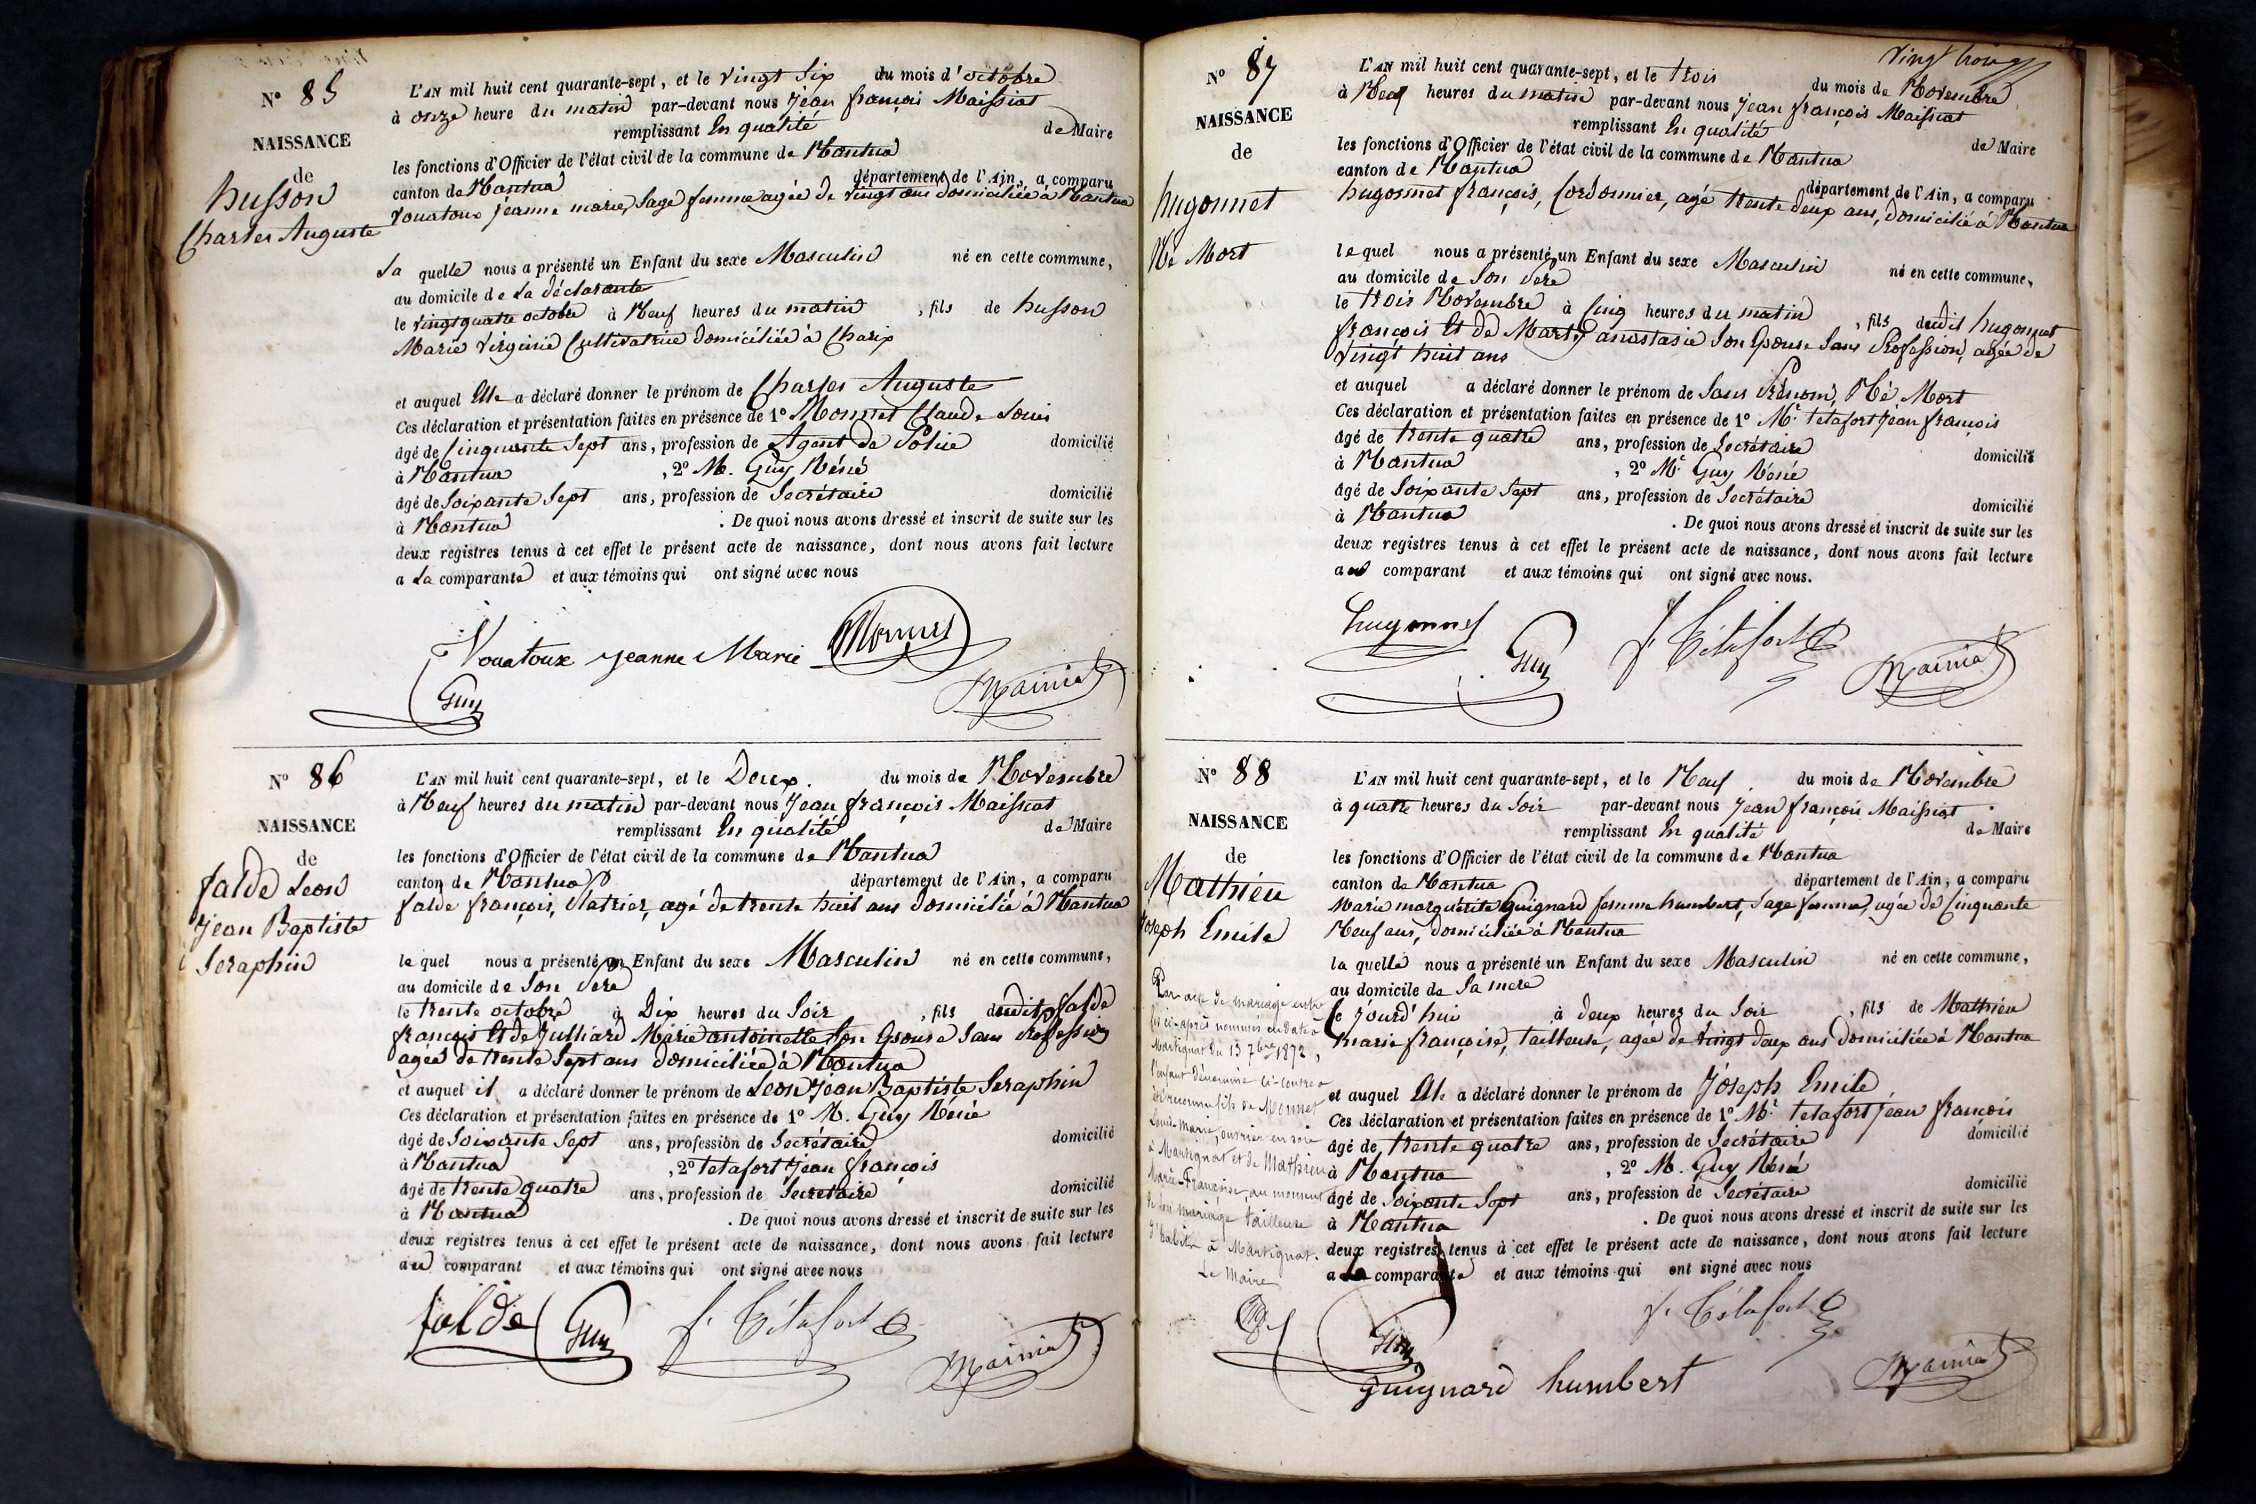 N° 85
NAISSANCE
de
husson
Charles Auguste
L'AN mil huit cent quarante-sept, et le vingt six du mois d'octobre
à onze heure du matin par-devant nous jean françois Maissiat
remplissant En qualité de Maire
les fonctions d'Officier de l'état civil de la commune de Nantua
canton de Nantua département de l'Ain, a comparu
vouatoux jeanne marie, sage femme agée de vingt ans domiciliée à Nantua
la quelle nous a présenté un Enfant du sexe Masculin né en cette commune,
au domicile de la déclarante
le vingt quatre octobre à Neuf heures du matin, fils de husson
Marie virginie Cultivatrice domiciliée à Charix
et auquel Elle a déclaré donner le prénom de Charles Auguste
Ces déclaration et présentation faites en présence de 1° Monnet Claude Louis
âgé de Cinquante sept ans, profession de Agent de Police domicilié
à Nantua, 2° M. Guy Réné
âgé de soixante sept ans, profession de Secrétaire domicilié
à Nantua. De quoi nous avons dressé et inscrit de suite sur les
deux registres tenus à cet effet le présent acte de naissance, dont nous avons fait lecture
a la comparante et aux témoins qui ont signé avec nous
Vouatoux jeanne Marie Monnet
Guy Maissiat
N° 86
NAISSANCE
de
falde Leon
jean Baptiste
Seraphin
L'AN mil huit cent quarante-sept, et le Deux du mois de Novembre
à Neuf heures du matin par-devant nous jean françois Maissiat
remplissant En qualité de Maire
les fonctions d'Officier de l'état civil de la commune de Nantua
canton de Nantua département de l'Ain, a comparu
falde françois, Platrier, agé de trente huit ans domicilié à Nantua
le quel nous a présenté un Enfant du sexe Masculin né en cette commune,
au domicile de son Père
le trente octobre à Dix heures du soir, fils dudit falde
françois Et de julliard Marie antoinette son Epouse sans Profession
agée de trente sept ans domiciliée à Nantua
et auquel il a déclaré donner le prénom de Leon jean Baptiste Seraphin
Ces déclaration et présentation faites en présence de 1° M. Guy Réné
âgé de soixante sept ans, profession de Secrétaire domicilié
à Nantua, 2° tetafort jean françois
âgé de trente quatre ans, profession de Secretaire domicilié
à Nantua. De quoi nous avons dressé et inscrit de suite sur les
deux registres tenus à cet effet le présent acte de naissance, dont nous avons fait lecture
au comparant et aux témoins qui ont signé avec nous
falde Guy f. Tétafort Maissiat
vingt trois
N° 87
NAISSANCE
de
hugonnet
Né Mort
L'AN mil huit cent quarante-sept, et le trois du mois de Novembre
à Neuf heures du matin par-devant nous jean françois Maissiat
remplissant En qualité de Maire
les fonctions d'Officier de l'état civil de la commune de Nantua
canton de Nantua département de l'Ain, a comparu
hugonnet françois, Cordonnier, agé trente deux ans, domicilié à Nantua
le quel nous a présenté un Enfant du sexe Masculin né en cette commune,
au domicile de son Père
le trois Novembre à Cinq heures du matin, fils dudit hugonnet
françois Et de Marty anastasie son Epouse sans Profession, agée de
vingt huit ans
et auquel a déclaré donner le prénom de sans Prénom, Né Mort
Ces déclaration et présentation faites en présence de 1° Mr. tetafort jean françois
âgé de trente quatre ans, profession de Secrétaire domicilié
à Nantua, 2° Mr. Guy Réné
âgé de soixante sept ans, profession de Secrétaire domicilié
à Nantua. De quoi nous avons dressé et inscrit de suite sur les
deux registres tenus à cet effet le présent acte de naissance, dont nous avons fait lecture
au comparant et aux témoins qui ont signé avec nous.
hugonnet Guy f. Tétafort Maissiat
N° 88
NAISSANCE
de
Mathieu
Joseph Emile
Par acte de mariage entre
les ci-après nommés en date à
Martignat du 13 7bre 1872,
l'enfant dénommé ci-contre a
été reconnu fils de Monnet
Louis Marie, ouvrier en soie
à Martignat et de Mathieu
Marie Françoise, au moment
de son mariage tailleuse
à Martignat.
Le Maire
L'AN mil huit cent quarante-sept, et le Neuf du mois de Novembre
à quatre heures du soir par-devant nous jean françois Maissiat
remplissant En qualité de Maire
les fonctions d'Officier de l'état civil de la commune de Nantua
canton de Nantua département de l'Ain, a comparu
Marie marguerite Guignard femme humbert, sage femme, agée de Cinquante
Neuf ans, domiciliée à Nantua
la quelle nous a présenté un Enfant du sexe Masculin né en cette commune,
au domicile de sa mere
Ce jourd'hui à deux heures du soir, fils de Mathieu
marie françoise, tailleuse, agée de vingt deux ans domiciliée à Nantua
et auquel Elle a déclaré donner le prénom de Joseph Emile
Ces déclaration et présentation faites en présence de 1° Mr. tetafort jean françois
âgé de trente quatre ans, profession de Secrétaire domicilié
à Nantua, 2° M. Guy Réné
âgé de soixante sept ans, profession de Secrétaire domicilié
à Nantua. De quoi nous avons dressé et inscrit de suite sur les
deux registres tenus à cet effet le présent acte de naissance, dont nous avons fait lecture
a la comparante et aux témoins qui ont signé avec nous
Guy f. Tétafort
guignard humbert Maissiat